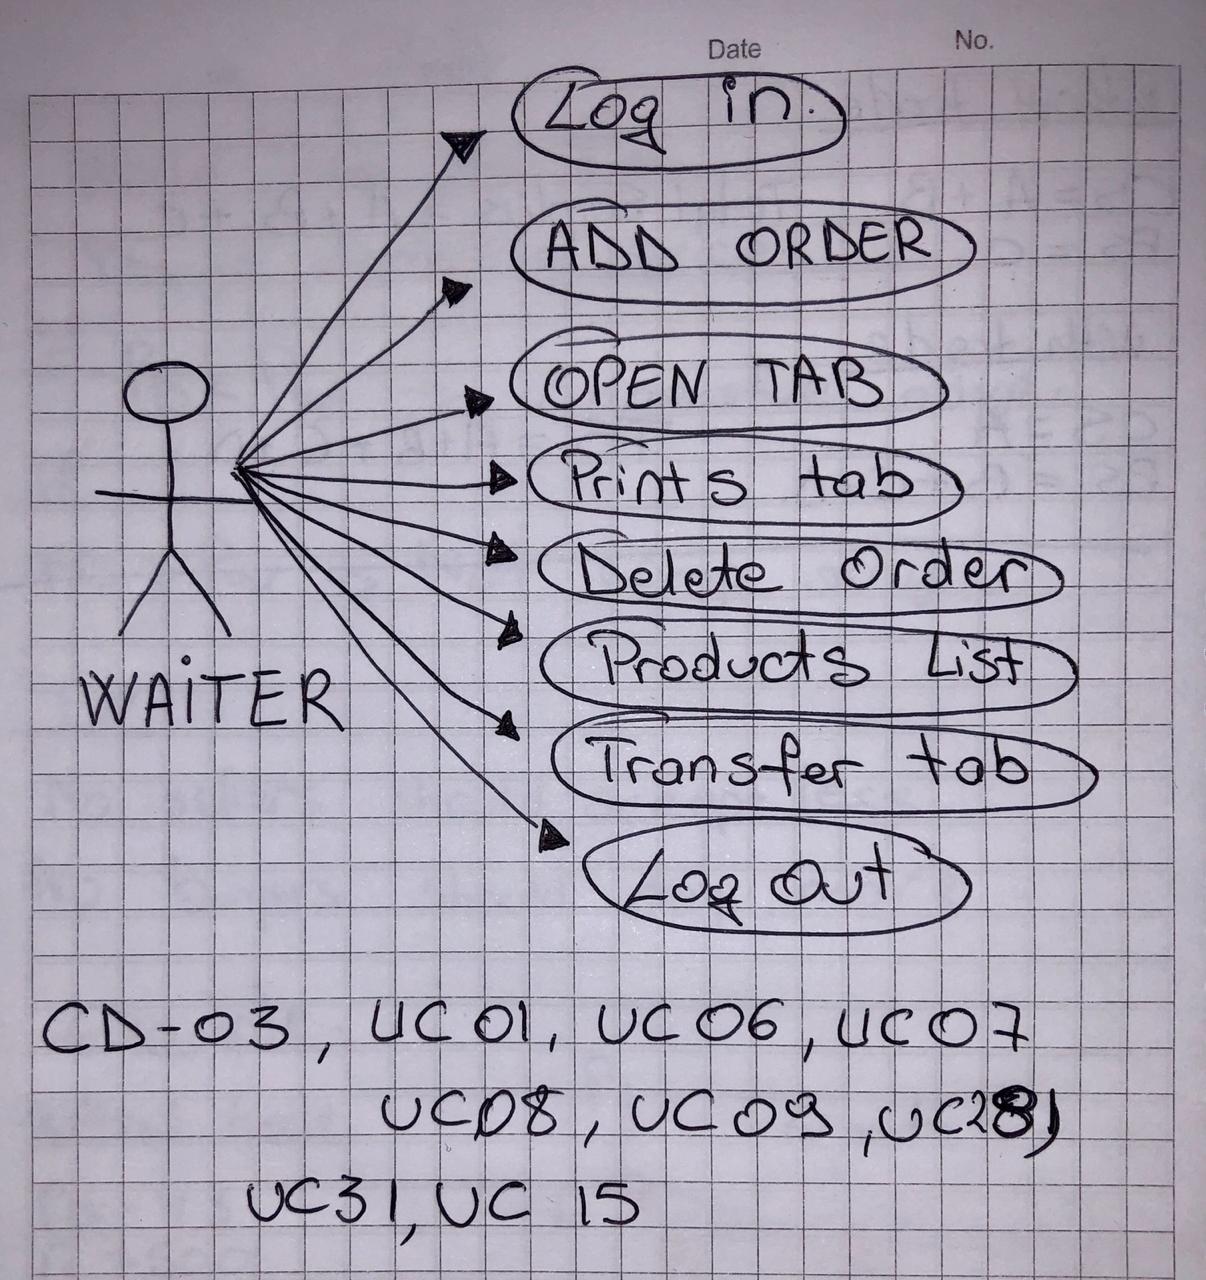 Date No.
Log in.
ADD ORDER
OPEN TAB
Prints tab
Delete Order
Products List
Transfer tab
Log Out
WAiTER
CD-03, UC01, UC06, UC07
UC08, UC09, UC28,
UC31, UC 15